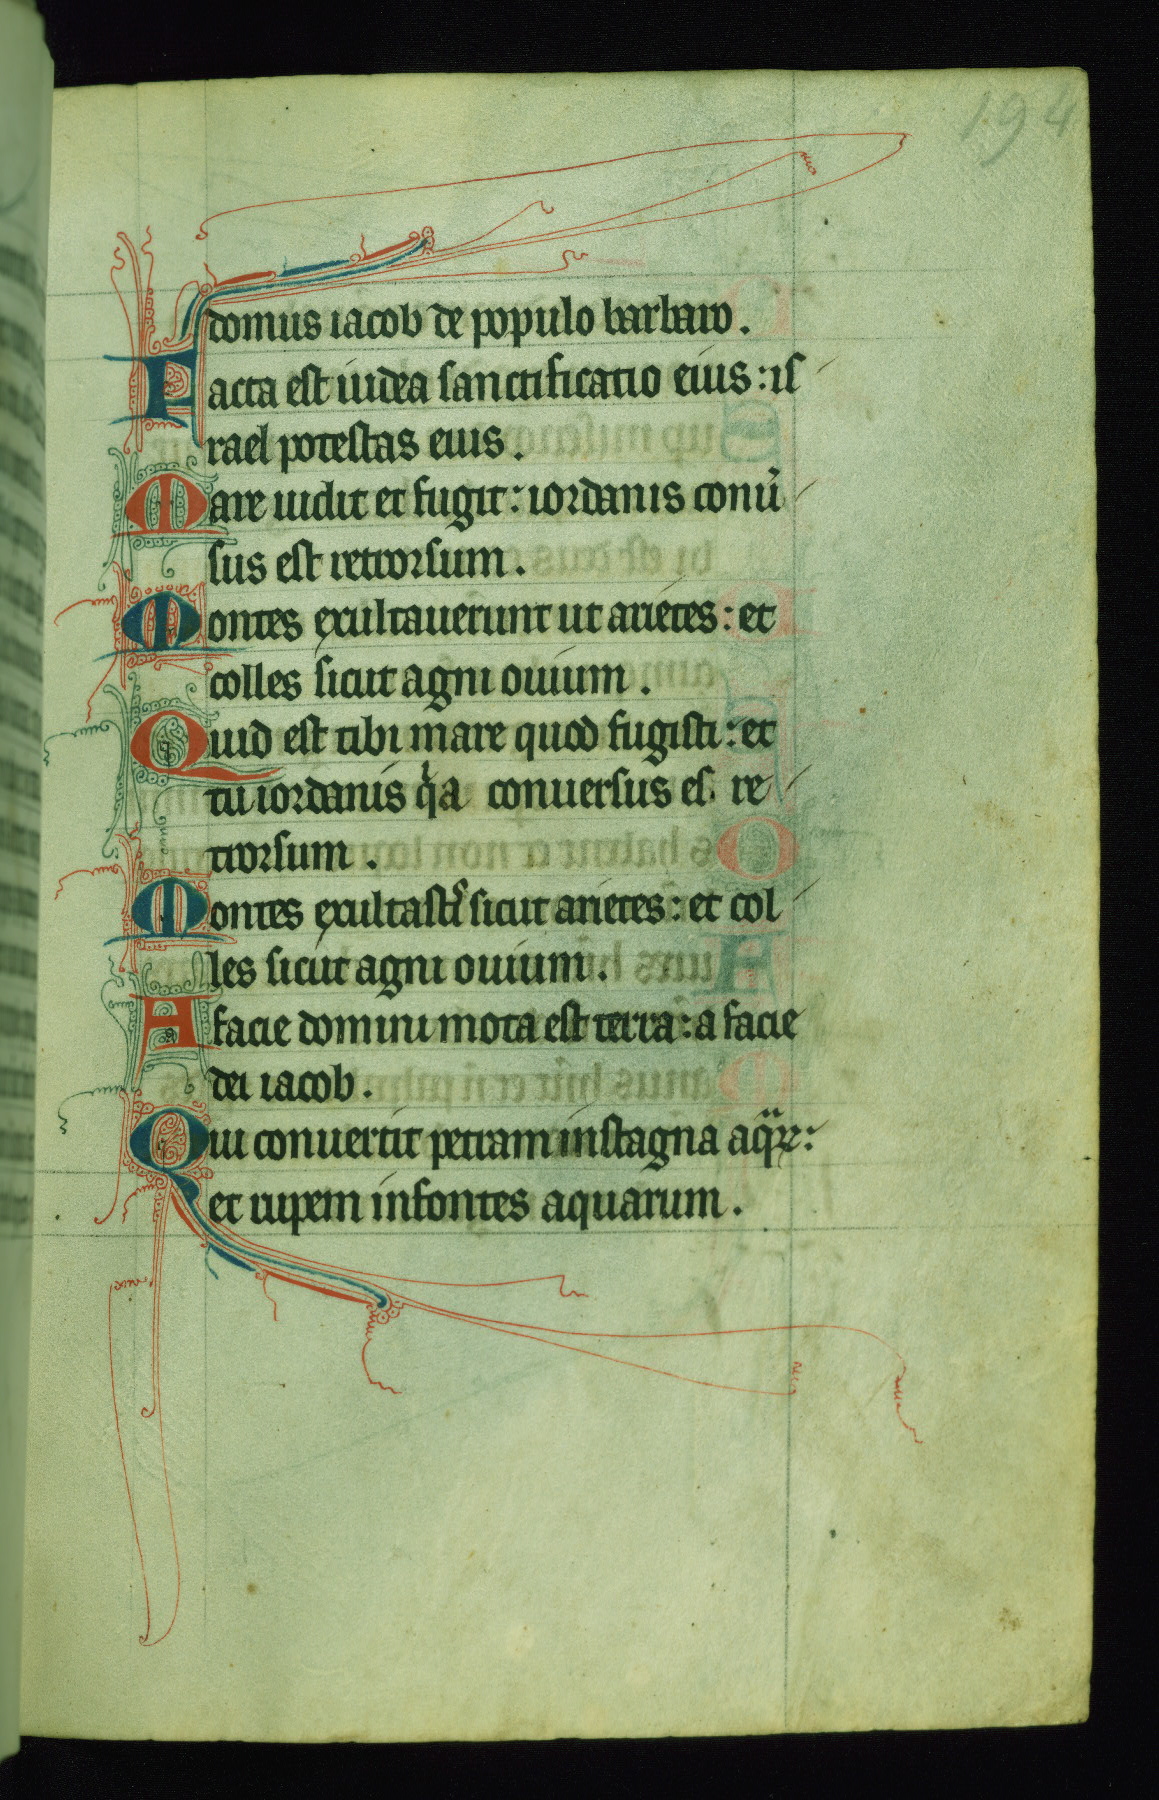 194
domus iacob de populo barbaro.
Facta est iudea sanctificatio eius: is
rael potestas eius.
Mare uidit et fugit: iordanis conu͛
sus est retrorsum.
Montes exultauerunt ut arietes: et
colles sicut agni ouium.
Quid est tibi mare quod fugisti: et
tu iordanis qͥa conuersus es re
trorsum.
Montes exultastꝭ sicut arietes: et col
les sicut agni ouium.
A facie domini mota est terra: a facie
dei iacob.
Qui conuertit petram in stagna aqᷓꝝ:
et rupem in fontes aquarum.